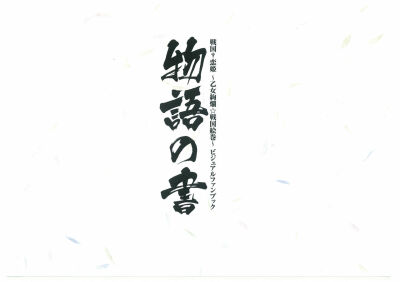 戦国†恋姫 ～乙女絢爛☆戦国絵巻～ ビジュアルファンブック
物語の書